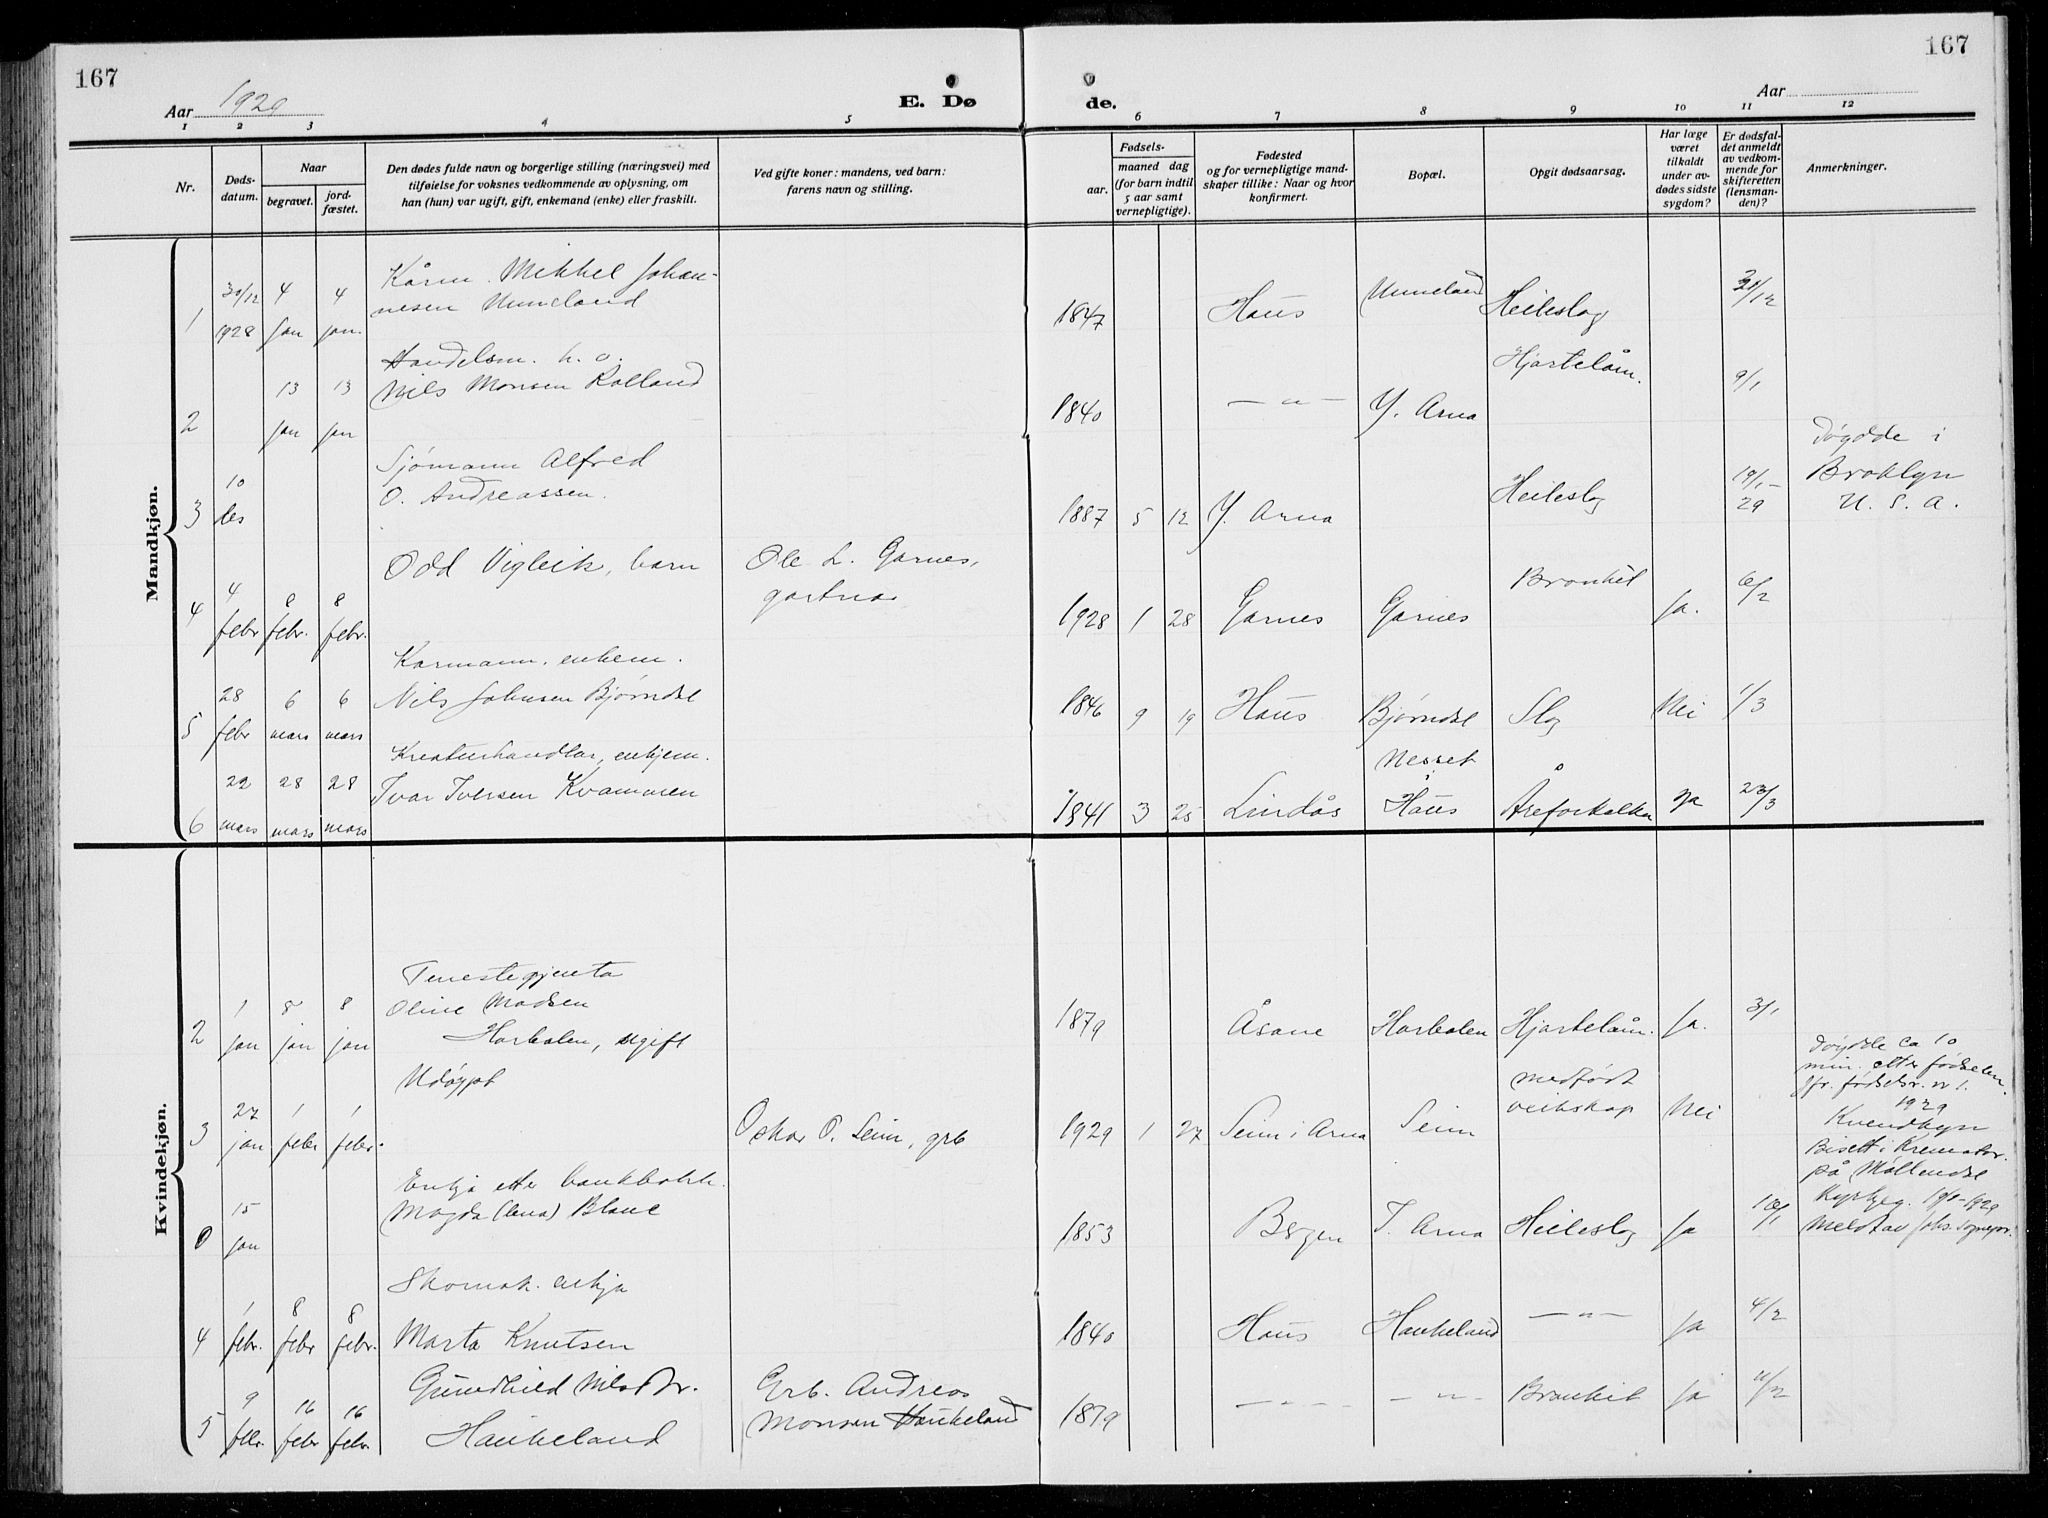 167
167
Aar 1929
E. Dø
de.
Aar
1 2 3 4 5 6 7 8 9 10 11 12
Nr.
Døds-
datum.
Naar
begravet.
jord-
fæstet.
Den dødes fulde navn og borgerlige stilling (næringsvei) med
tilføielse for voksnes vedkommende av oplysning, om
han (hun) var ugift, gift, enkemand (enke) eller fraskilt.
Ved gifte koner: mandens, ved barn:
farens navn og stilling.
Fødsels-
aar.
maaned dag
(for barn indtil
5 aar samt
vernepligtige).
Fødested
og for vernepligtige mand-
skaper tillike: Naar og hvor
konfirmert.
Bopæl.
Opgit dødsaarsag.
Har læge
været
tilkaldt
under av-
dødes sidste
sygdom?
Er dødsfal-
det anmeldt
av vedkom-
mende for
skifteretten
(lensman-
den)?
Anmerkninger.
Mandkjøn.
1 30/12 1928 4 jan 4 jan. Kårm. Mikkel Johan-
nesen Unneland 1847 Haus Unneland Heileslag 31/12
Handelsm. h. o.
2 13 jan 13 jan Nils Monsen Rolland 1840 — " — Y. Arna Hjartelåm. 9/1
3 10 des Sjømann Alfred
O. Andreassen. 1887 5 12 Y. Arna Heileslag 19/1-29 Døydde i
Broklyn
U. S. A.
4 4 febr 8 febr. 8 febr. Odd Vigleik, barn Ole L. Garnes,
gartnar 1928 1 28 Garnes Garnes Bronkit Ja. 6/2
Kårmann. enkem.
5 28 febr 6 mars 6 mars Nils Johnsen Bjørndal 1846 9 19 Haus Bjørndal Slag Nei 1/3
Kreaturhandlar, enkjem.
6 22 mars 28 mars 28 mars Ivar Iversen Kvammen 1841 3 25 Lindås Nesset i Haus Åreforkalka Ja 23/3
Kvindekjøn.
Tenestegjenta
2 1 jan 8 jan 8 jan Oline Madsen
Horbalen, ugift 1879 Åsane Horbalen Hjartelåm. Ja. 3/1
3 27 jan 1 febr 1 febr. Udøypt Oskar O. Seim, grb 1929 1 27 Seim i Arna Seim medfødt
veikskap Nei Døydde ca 10
min. etter fødselen.
Jfr. fødselsr. nr 1.
1929
Kvendkyn
0 15 jan Enkja etter bankbokh.
Magda (Lena) Blanc 1853 Bergen I. Arna Heileslag Ja 18/1 Bisett i Kremator.
på Møllendal
Kyrkjeg. 19/1-1929
Meldt av Johs. sognepr.
Skomak. enkja
4 1 febr. 8 febr 8 febr. Marta Knutsen 1840 Haus Haukeland — " — Ja 4/2
5 9 febr. 16 febr 16 febr. Gundhild Nilsdtr.
Haukeland Grb. Andreas
Monsen Haukeland 1879 — " — — " — Bronkit Ja 11/2